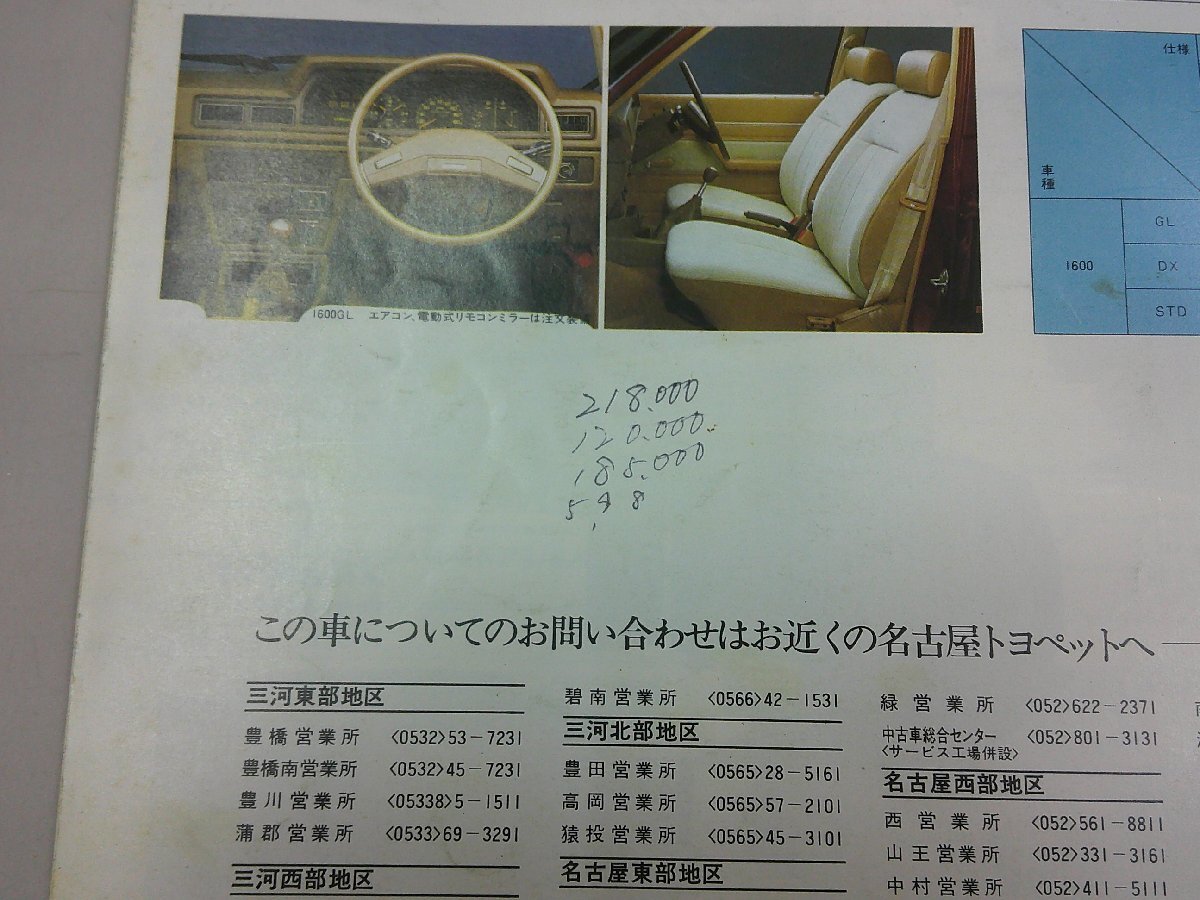 仕様
車種
GL
1600
DX
STD
1600GL エアコン、電動式リモコンミラーは注文装
218.000
120.000
185.000
この車についてのお問い合わせはお近くの名古屋トヨペットへ
三河東部地区
豊橋営業所 <0532>53-7231
豊橋南営業所 <0532>45-7231
豊川営業所 <05338>5-1511
蒲郡営業所 <0533>69-3291
三河西部地区
碧南営業所 <0566>42-1531
三河北部地区
豊田営業所 <0565>28-5161
高岡営業所 <0565>57-2101
猿投営業所 <0565>45-3101
名古屋東部地区
緑営業所 <052>622-2371
中古車総合センター <052>801-3131
<サービス工場併設>
名古屋西部地区
西営業所 <052>561-8811
山王営業所 <052>331-3161
中村営業所 <052>411-5111